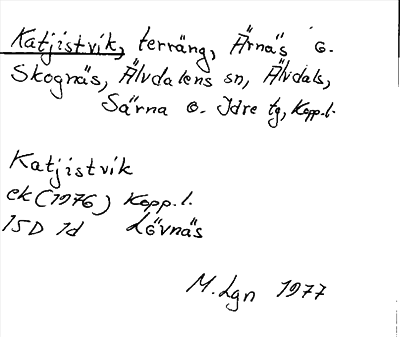 Katjistvik, terräng, Ärnäs o.
Skognäs, Älvdalens sn, Älvdals,
Särna o. Idre tg, Kopp.l.
Katjistvik
ek (1976) Kopp.l.
15D 1d Lövnäs
M. Lgn 1977